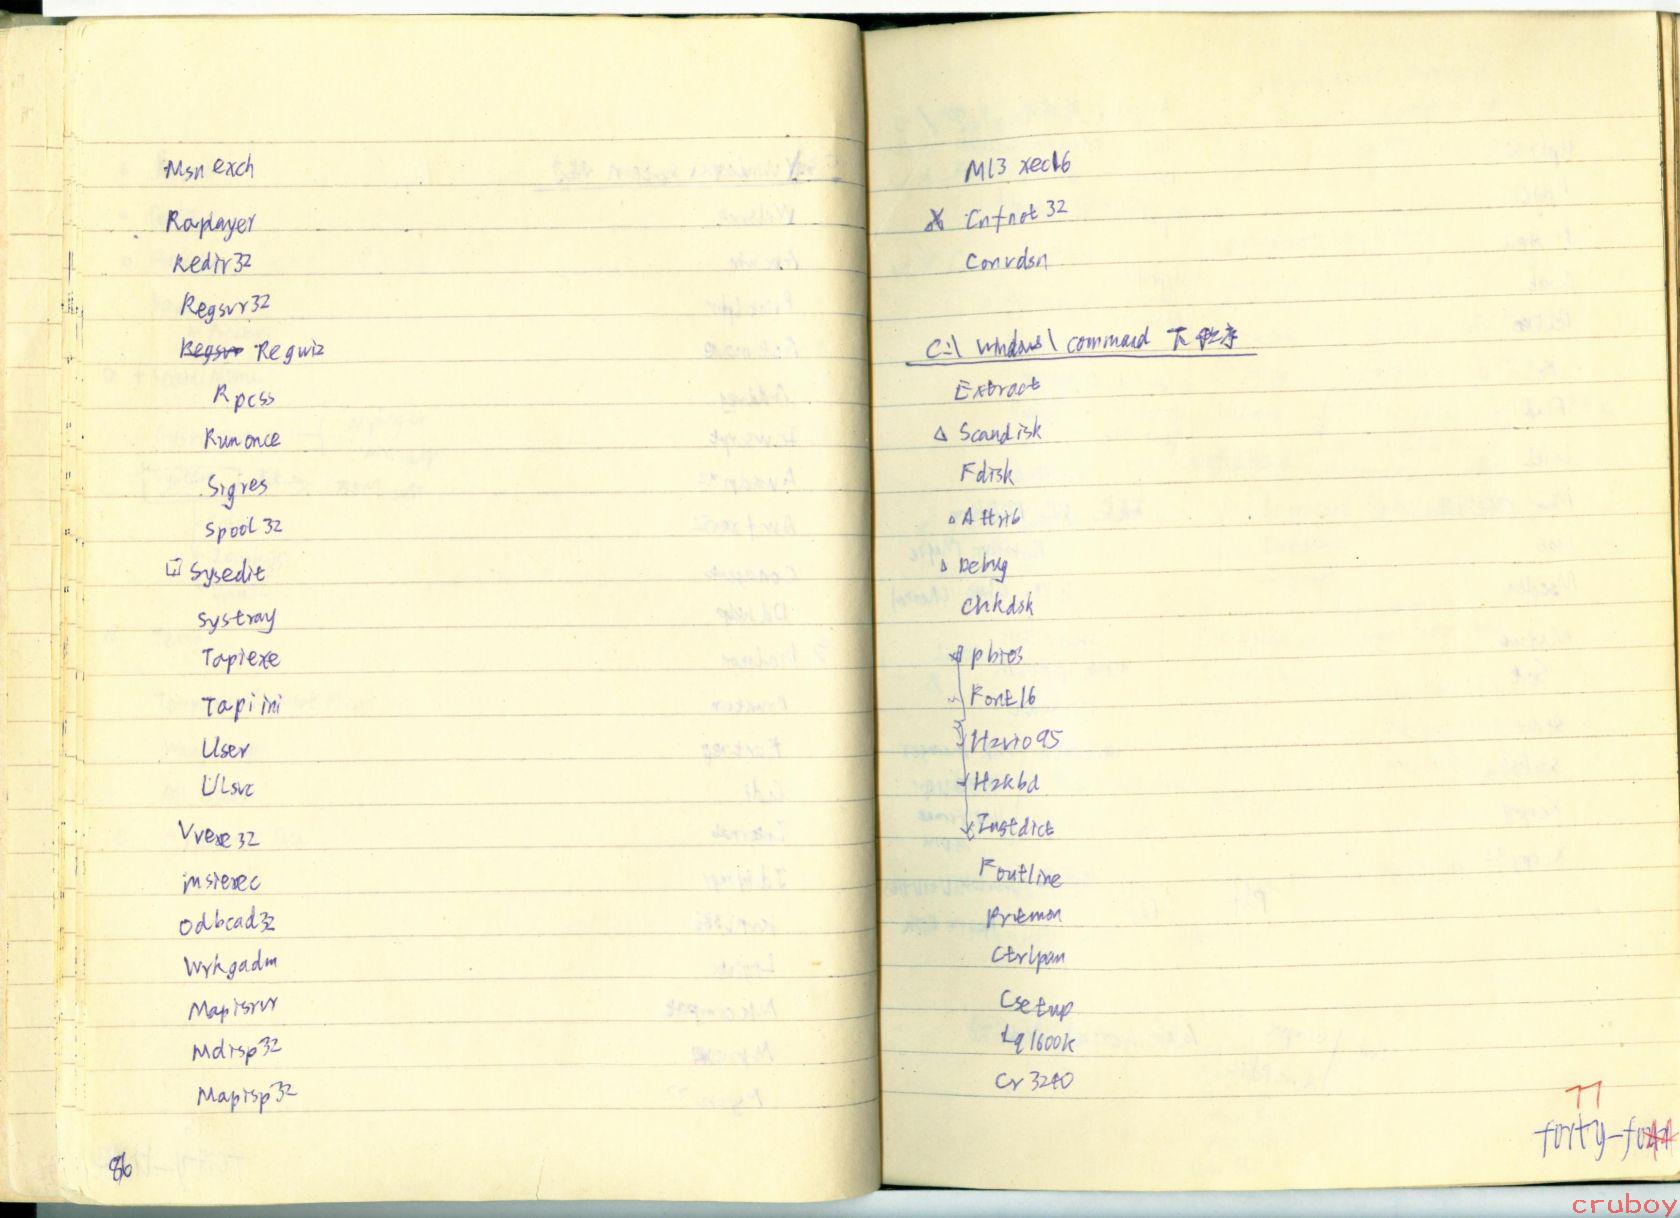 Msnexch
Raplayer
Redir32
Regsvr32
Regsvr Regwiz
Rpcss
Runonce
Sigres
Spool32
Sysedit
Systray
Tapiexe
Tapiini
User
ULsvc
Vvexe32
msiexec
odbcad32
Wrkgadm
Mapisrvr
Mdisp32
Mapisp32
86
Ml3xec16
Cnfnot32
Convdsn
C:\ windows\ command 下程序
Extract
△ Scandisk
Fdisk
△ Attrib
△ Debug
Chkdsk
pbios
Font16
Hzvio95
Hzkbd
Instdict
Foutline
Prtmon
Ctrlpan
Csetup
Lq1600k
Cr3240
77
forty-four
cruboy